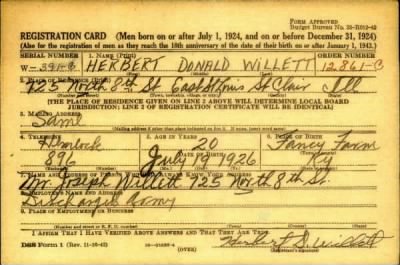 FORM APPROVED
Budget Bureau No. 33-R012-42
REGISTRATION CARD (Men born on or after July 1, 1924, and on or before December 31, 1924)
(Also for the registration of men as they reach the 18th anniversary of the date of their birth on or after January 1, 1943.)
SERIAL NUMBER 1. NAME ORDER NUMBER
W- 391-B HERBERT DONALD WILLETT 12,861-C
2. PLACE OF RESIDENCE
725 North 8th St East St Louis St Clair Ill
[THE PLACE OF RESIDENCE GIVEN ON LINE 2 ABOVE WILL DETERMINE LOCAL BOARD
JURISDICTION; LINE 2 OF REGISTRATION CERTIFICATE WILL BE IDENTICAL]
3. MAILING ADDRESS
Same
4. TELEPHONE 5. AGE IN YEARS 6. PLACE OF BIRTH
Hemlock 20 Fancy Farm
896 July 19 1926 Ky
7. NAME AND ADDRESS OF PERSON WHO WILL ALWAYS KNOW YOUR ADDRESS
Willett 725 North 8th St.
8. EMPLOYER'S NAME AND ADDRESS
Discharged Army
9. PLACE OF EMPLOYMENT OR BUSINESS
I AFFIRM THAT I HAVE VERIFIED ABOVE ANSWERS AND THAT THEY ARE TRUE.
DSS Form 1 (Rev. 11-16-42) (OVER) Herbert D. Willett